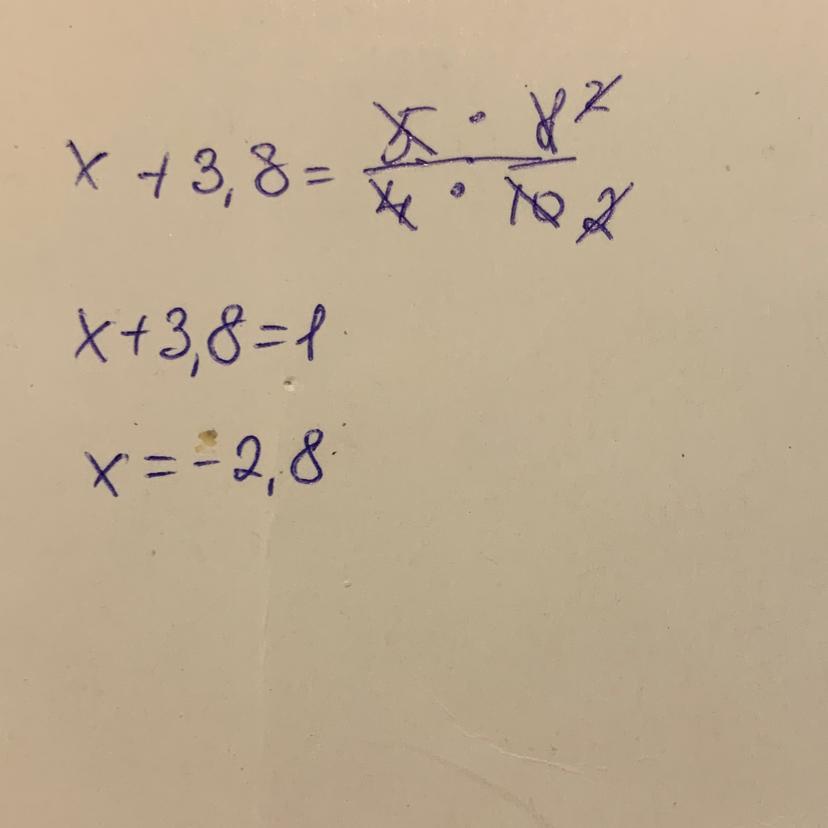 x + 3,8 = 5 · 8 2 / 4 · 10 2
x + 3,8 = 1
x = -2,8